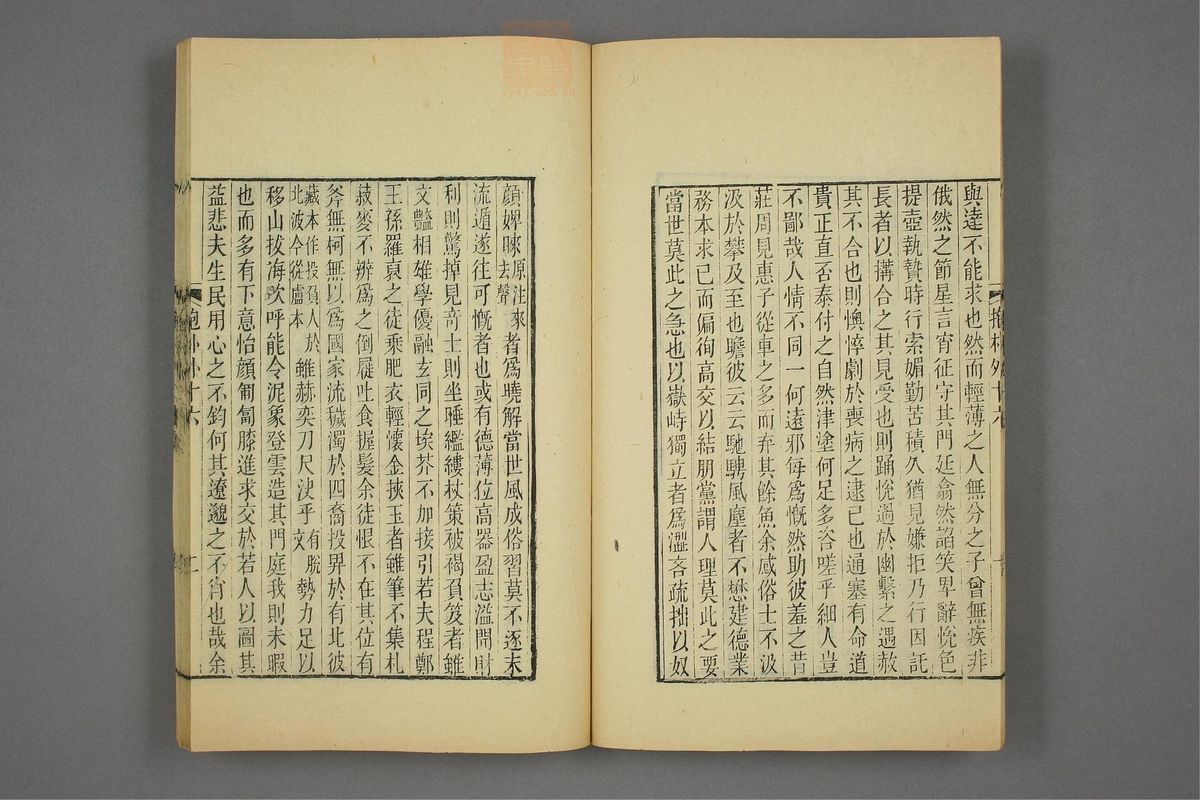 與逹不能求也然而輕薄之人無分之子曾無疾非
俄然之節星言宵征守其門廷翕然諂笑卑辭恱色
提壺執贄時行索媚勤苦積久猶見嫌拒乃行因託
長者以搆合之其見受也則踊恱過於幽繫之遇赦
其不合也則懊悴劇於喪病之逮己也通塞有命道
貴正直否泰付之自然津塗何足多咨嗟乎細人豈
不鄙哉人情不同一何遠邪每爲慨然助彼羞之昔
莊周見惠子從車之多而弃其餘魚余感俗士不汲
汲於攀及至也瞻彼云云馳騁風塵者不懋建德業
務本求己而偏徇高交以結朋黨謂人理莫此之要
當世莫此之急也以嶽峙獨立者爲澀吝疏拙以奴
抱朴外十六
顔婢睞原注來去聲者爲曉解當世風成俗習莫不逐末
流遁遂往可慨者也或有德薄位高器盈志溢聞財
利則驚掉見奇士則坐睡繿縷杖策被褐負笈者雖
文豔相雄學優融玄同之埃芥不加接引若夫程鄭
王孫羅裒之徒乘肥衣輕懷金挾玉者雖筆不集札
菽麥不辨爲之倒屣吐食握髮余徒恨不在其位有
斧無柯無以爲國家流穢濁於四裔投畀於有北彼
藏本作投負人於北波今從盧本雖赫奕刀尺決乎有脫文勢力足以
移山拔海吹呼能令泥象登雲造其門庭我則未暇
也而多有下意怡顔匍匐膝進求交於若人以圖其
益悲夫生民用心之不鈞何其遼邈之不肖也哉余
抱朴外十六